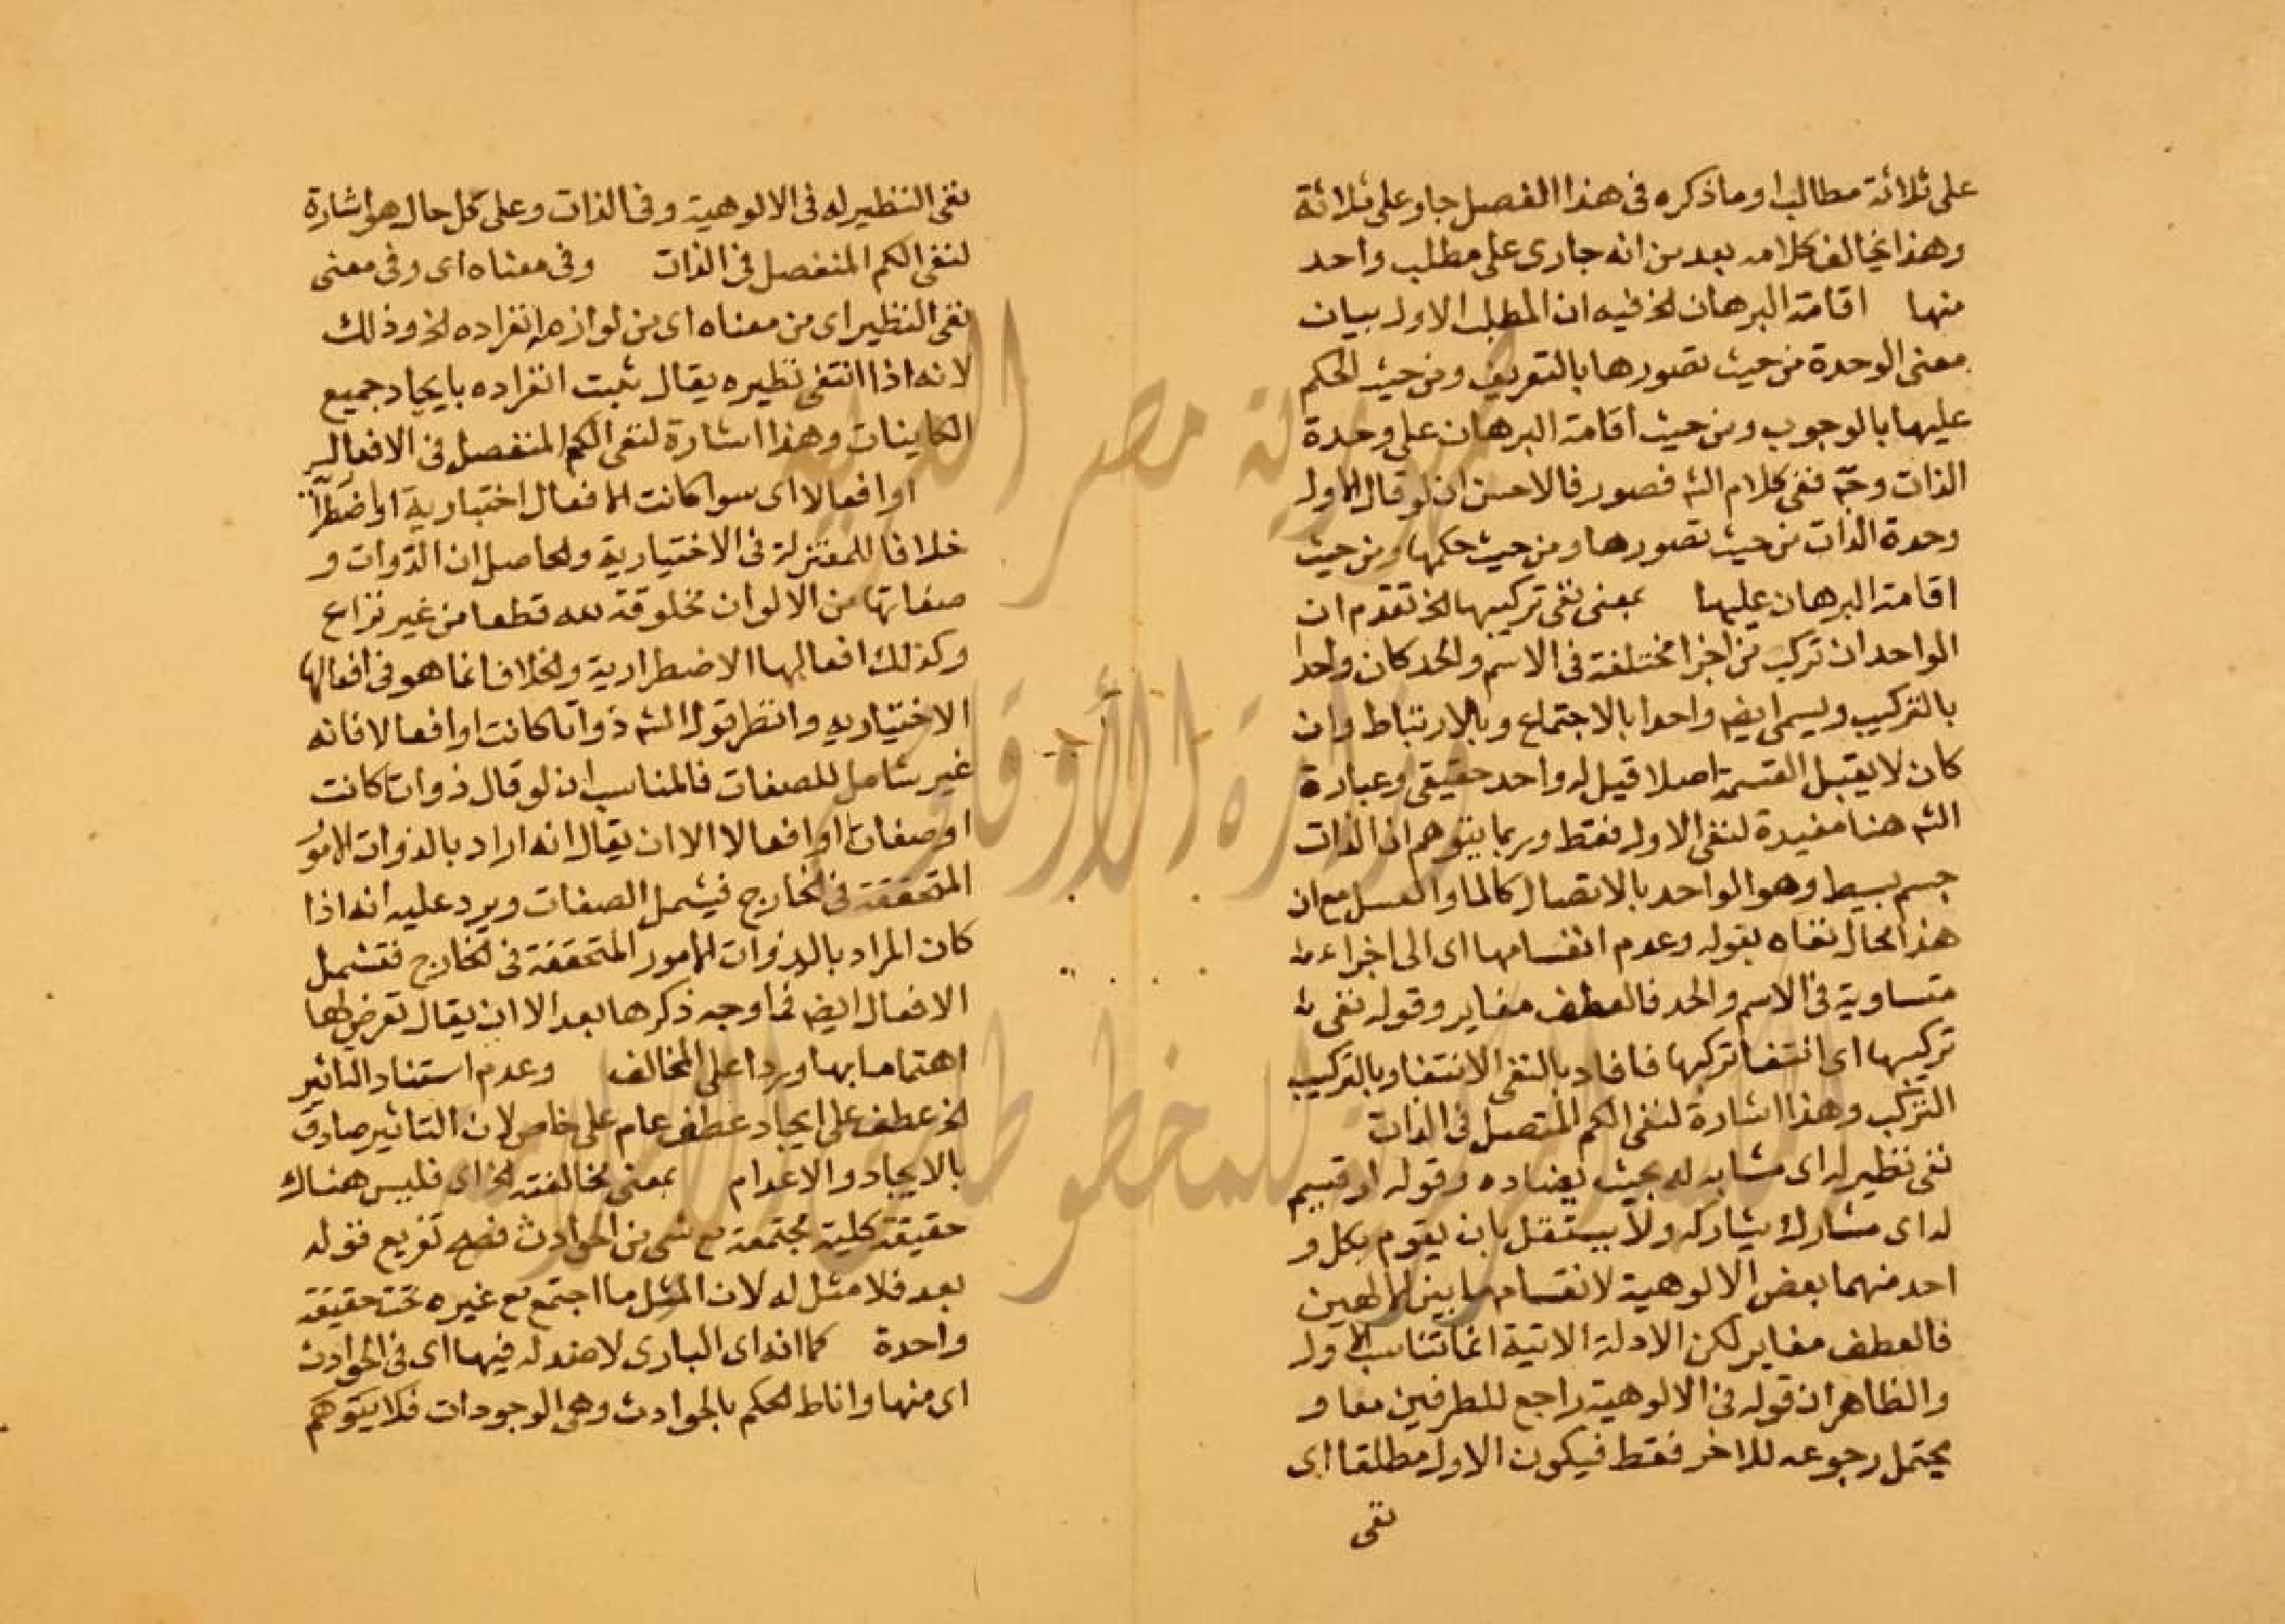 على ثلاثة مطالب او ما ذكره فى هذا الفصل جاو على ثلاثة
وهذا يخالف كلامه بعد من انه جارى على مطلب واحد
منها اقامة البرهان لخ فيه ان المطلب الاول بيان
معنى الوحدة من حيث تصورها بالتعريف ومن حيث الحكم
عليها بالوجوب ومن حيث اقامة البرهان على وحدة
الذات وحّه ففى كلام الشه قصور فالاحسن ان لو قال الاول
وحدة الذات من حيث تصورها ومن حيث حكمها ومن حيث
اقامة البرهان عليها بمعنى نفى تركيبها لخ تقدم ان
الواحد ان تركب من اجزا مختلفة فى الاسم والحد كان واحدا
بالتركيب ويسمى ايضه واحدا بالاجتماع وبالارتباط وان
كان لا يقبل القسمة اصلا قيل له واحد حقيقى وعبارة
الشه هنا مفيدة لنفى الاول فقط وربما يتوهم ان الذات
جسم بسيط وهو الواحد بالاتصال كالما والعسل مع ان
هذا محال نفاه بقوله وعدم انقسامها اى الى اجزاء
متساوية فى الاسم والحد فالعطف مغاير وقوله نفى
تركيبها اى انتفا تركبها فافاد بالنفى الانتفا وبالتركيب
التركب وهذا اشارة لنفى الكم المتصل فى الذات
نفى نظير له اى مشابه له بحيث يضاده وقوله او قسيم
له اى مشارك يشاركه ولا يستقل بان يقوم بكل و
احد منهما بعض الالوهية لانقسامها بين الالهين
فالعطف مغاير لكن الادلة الاتية انما تناسب الاول
والظاهر ان قوله فى الالوهية راجع للطرفين معا و
يحتمل رجوعه للاخر فقط فيكون الاول مطلقا اى
نفى
نفى النظير له فى الالوهية وفى الذات وعلى كل حال هو اشارة
لنفى الكم المنفصل فى الذات وفى معناه اى وفى معنى
نفى النظير اى من معناه اى من لوازمه انفراده لخ وذلك
لانه اذا انتفى نظيره يقال ثبت انفراده بايجاد جميع
الكاينات وهذا اشارة لنفى الكم المنفصل فى الافعال
او افعالا اى سوا كانت الافعال اختيارية او اضطرا
خلافا للمعتزلة فى الاختيارية والحاصل ان الذوات و
صفاتها من الالوان مخلوقة لله قطعا من غير نزاع
وكذلك افعالها الاضطرارية والخلاف انما هو فى افعالها
الاختياريه وانظر قول الشه ذواتا كانت او افعالا فانه
غير شامل للصفات فالمناسب ان لو قال ذواتا كانت
او صفات او افعالا الا ان يقال انه اراد بالذوات الامور
المتحققة فى الخارج فيشمل الصفات ويرد عليه انه اذا
كان المراد بالذوات الامور المتحققة فى الخارج فتشمل
الافعال ايضه فما وجه ذكرها بعد الا ان يقال تعرض لها
اهتماما بها وردا على المخالف وعدم استناد التاثير
لخ عطف على ايجاد عطف عام على خاص لان التاثير صادق
بالايجاد والاعدام بمعنى مخالفته لخ اى فليس هناك
حقيقة كلية مجتمعة مع شى من الحوادث فصح تفريع قوله
بعد فلا مثل له لان المثل ما اجتمع مع غيره تحت حقيقة
واحدة كما انه اى البارى لا ضد له فيها اى فى الحوادث
اى منها واناط الحكم بالحوادث وهى الوجودات فلا يتوهم